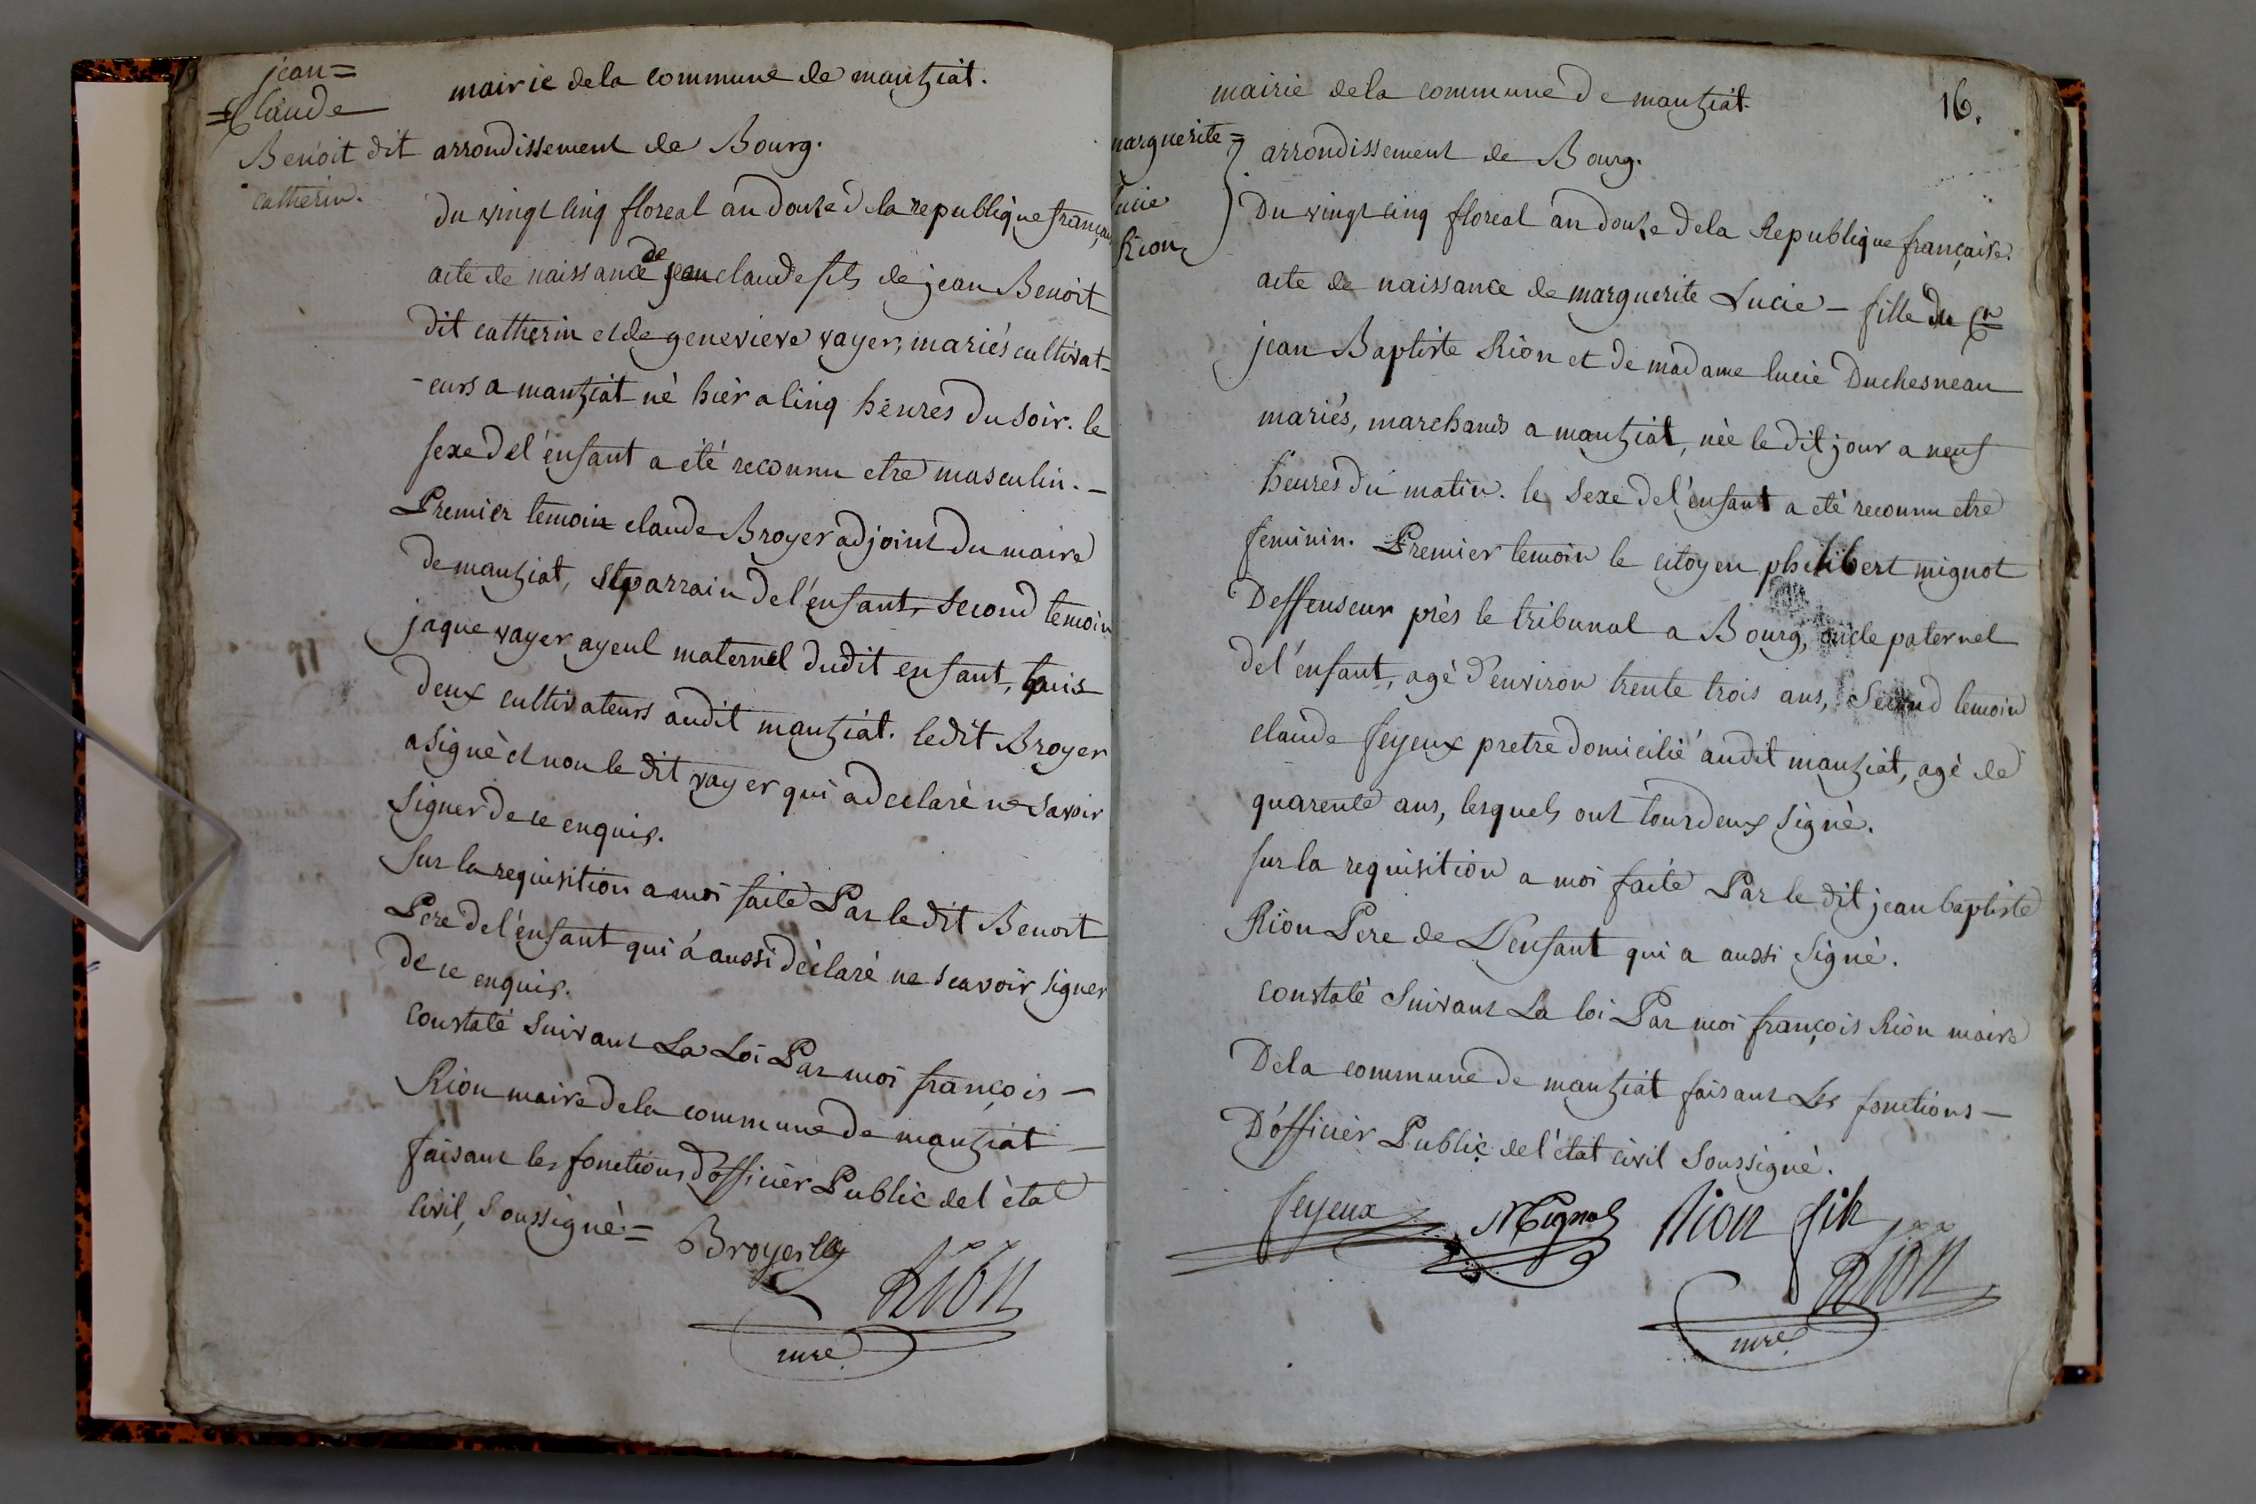 jean=
=Claude
Benoit dit
catherin.
mairie de la commune de mantziat.
arrondissement de Bourg.
du vingt cinq floreal an douze de la republique français
acte de naissance de jean claude fils de jean Benoit
dit catherin et de genevieve vayer, mariés cultivat-
-eurs a mantziat né hier a cinq heures du soir. le
sexe de l'enfant a été reconnu etre masculin. -
Premier temoin claude Broyer adjoint du maire
de mantziat, et parrain de l'enfant, second temoin
jaque vayer ayeul maternel dudit enfant, tous
deux cultivateurs audit mantziat. ledit Broyer
a signé et non le dit vayer qui a declaré ne savoir
signer de ce enquis.
sur la requisition a moi faite Par le dit Benoit
Pere de l'enfant qui a aussi déclaré ne scavoir signer
de ce enquis.
constaté suivant La Loi Par moi françois -
Rion maire de la commune de mantziat -
faisant les fonctions d'officier Public de l'état
civil, soussigné. =
Broyer
Rion
mre
16.
mairie de la commune de mantziat
marguerite =
lucie
Rion
arrondissement de Bourg.
Du vingt cinq floreal an douze de la Republique française.
acte de naissance de marguerite Lucie - fille du Cn
jean Baptiste Rion et de madame lucie Duchesneau
mariés, marchands a mantziat, née le dit jour a neuf
heures du matin. le sexe de l'enfant a été reconnu etre
feminin. Premier temoin le citoyen philibert mignot
Deffenseur près le tribunal a Bourg, oncle paternel
de l'enfant, agé d'environ trente trois ans, second temoin
claude feyeux pretre domicilié audit mantziat, agé de
quarente ans, lesquels ont tous deux signé.
sur la requisition a moi faite Par le dit jean baptiste
Rion Pere de L'enfant qui a aussi signé.
constaté suivant La loi Par moi françois Rion maire
De la commune de mantziat faisant Les fonctions -
D'officier Public de l'état civil soussigné.
feyeux Mignot Rion fils
Rion
mre